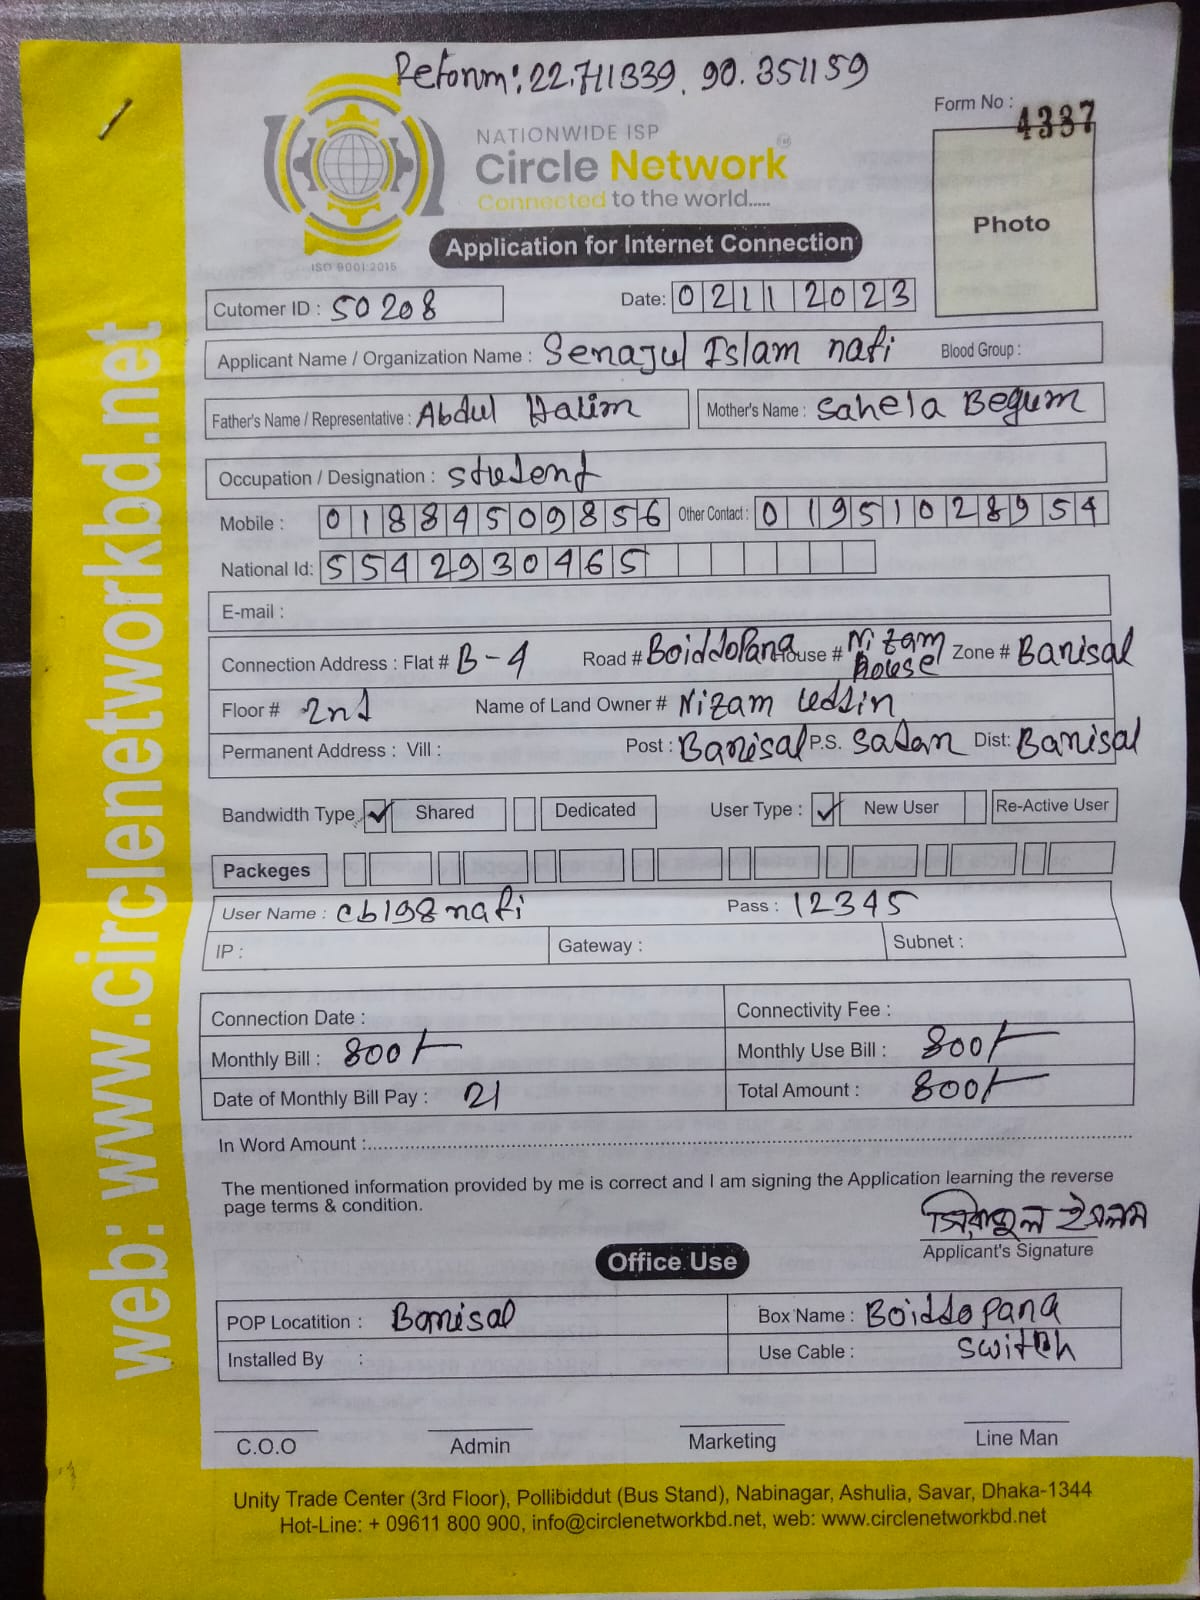 Reform: 22.711339, 90.351159
Form No : 4337
NATIONWIDE ISP
Circle Network
Connected to the world.....
ISO 9001:2015
Application for Internet Connection
Photo
Cutomer ID : 50208
Date: 02112023
Applicant Name / Organization Name : Senajul Islam nafi Blood Group :
Father's Name / Representative : Abdul Halim Mother's Name : Sahela Begum
Occupation / Designation : student
Mobile : 01884509856 Other Contact : 01951028954
National Id: 5542930465
E-mail :
Connection Address : Flat # B-4 Road # Boiddopana House # Nizam House Zone # Banisal
Floor # 2nd Name of Land Owner # Nizam Uddin
Permanent Address : Vill : Post : Banisal P.S. Sadan Dist: Banisal
Bandwidth Type Shared Dedicated User Type : New User Re-Active User
Packeges
User Name : cb198nafi Pass : 12345
IP : Gateway : Subnet :
Connection Date : Connectivity Fee :
Monthly Bill : 800/- Monthly Use Bill : 800/-
Date of Monthly Bill Pay : 21 Total Amount : 800/-
In Word Amount :
The mentioned information provided by me is correct and I am signing the Application learning the reverse
page terms & condition.
সিরাজুল ইসলাম
Applicant's Signature
Office Use
POP Locatition : Banisal Box Name : Boiddopana
Installed By : Use Cable : switch
C.O.O Admin Marketing Line Man
Unity Trade Center (3rd Floor), Pollibiddut (Bus Stand), Nabinagar, Ashulia, Savar, Dhaka-1344
Hot-Line: + 09611 800 900, info@circlenetworkbd.net, web: www.circlenetworkbd.net
web: www.circlenetworkbd.net